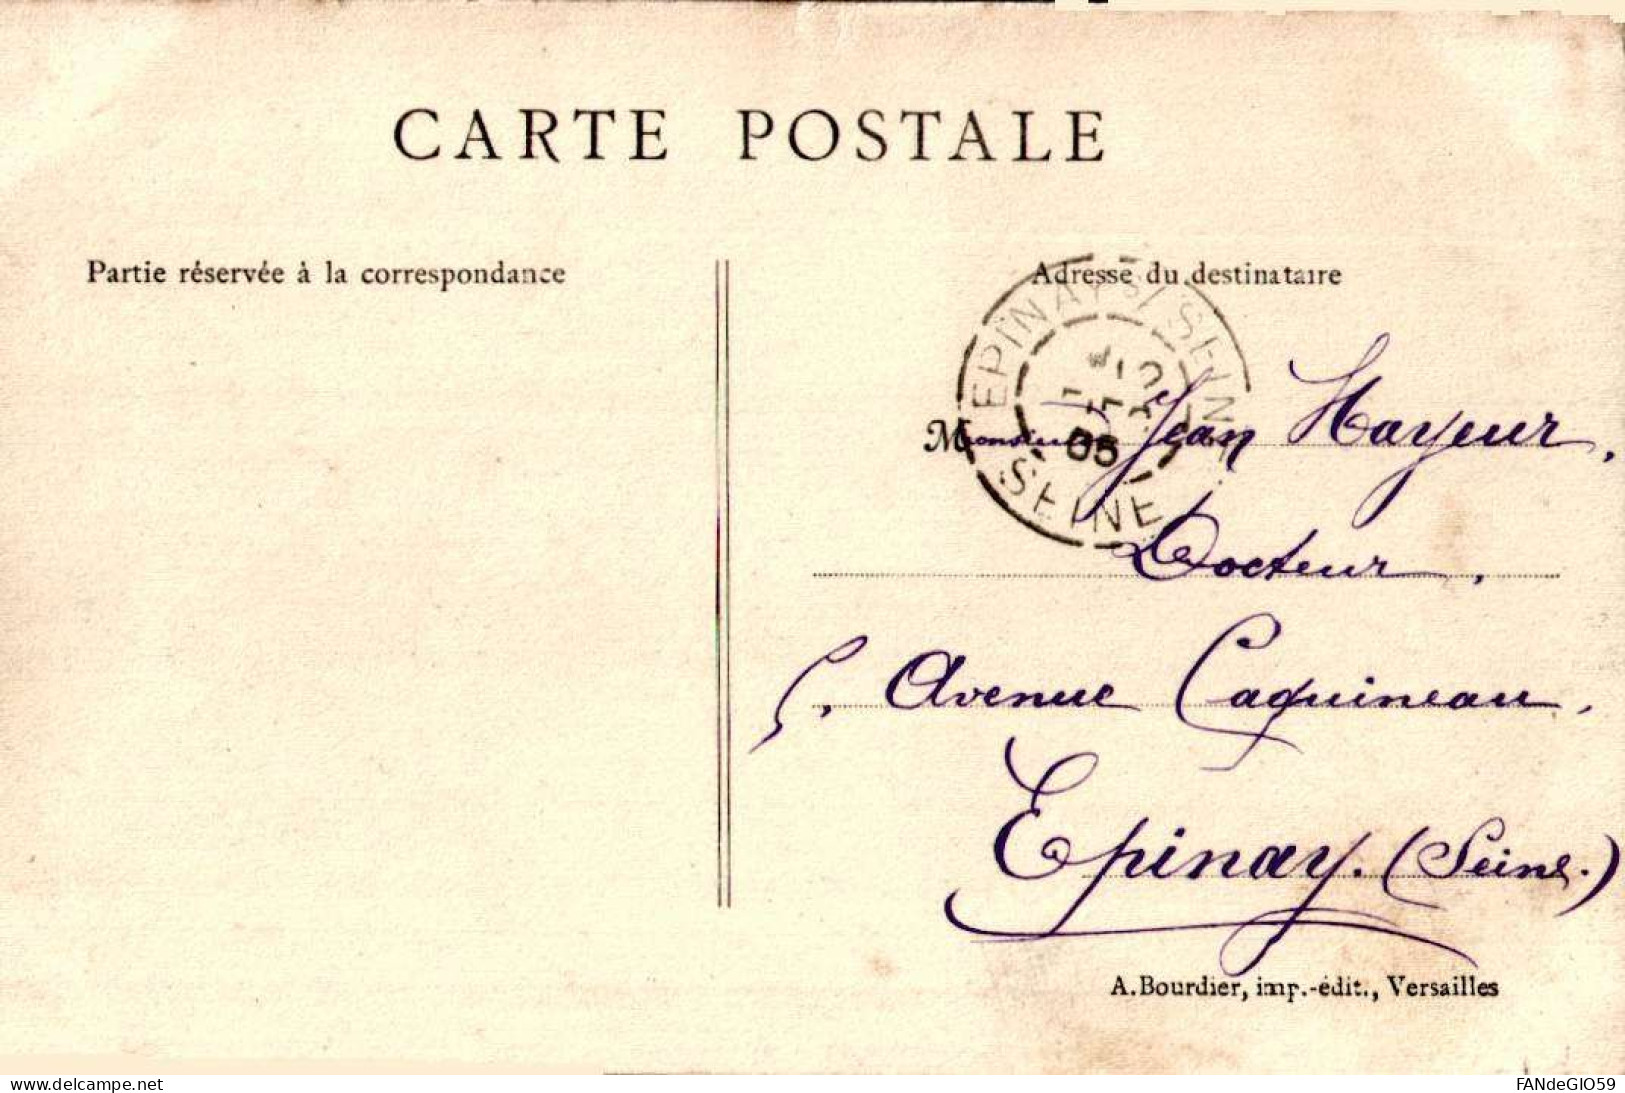 CARTE POSTALE
Partie réservée à la correspondance
Adresse du destinataire
EPINAY S/ SEINE
05
SEINE
Monsieur Jean Hayeur,
Docteur,
5, Avenue Caquineau,
Epinay. (Seine.)
A. Bourdier, imp.-édit., Versailles
www.delcampe.net
FANdeGIO59